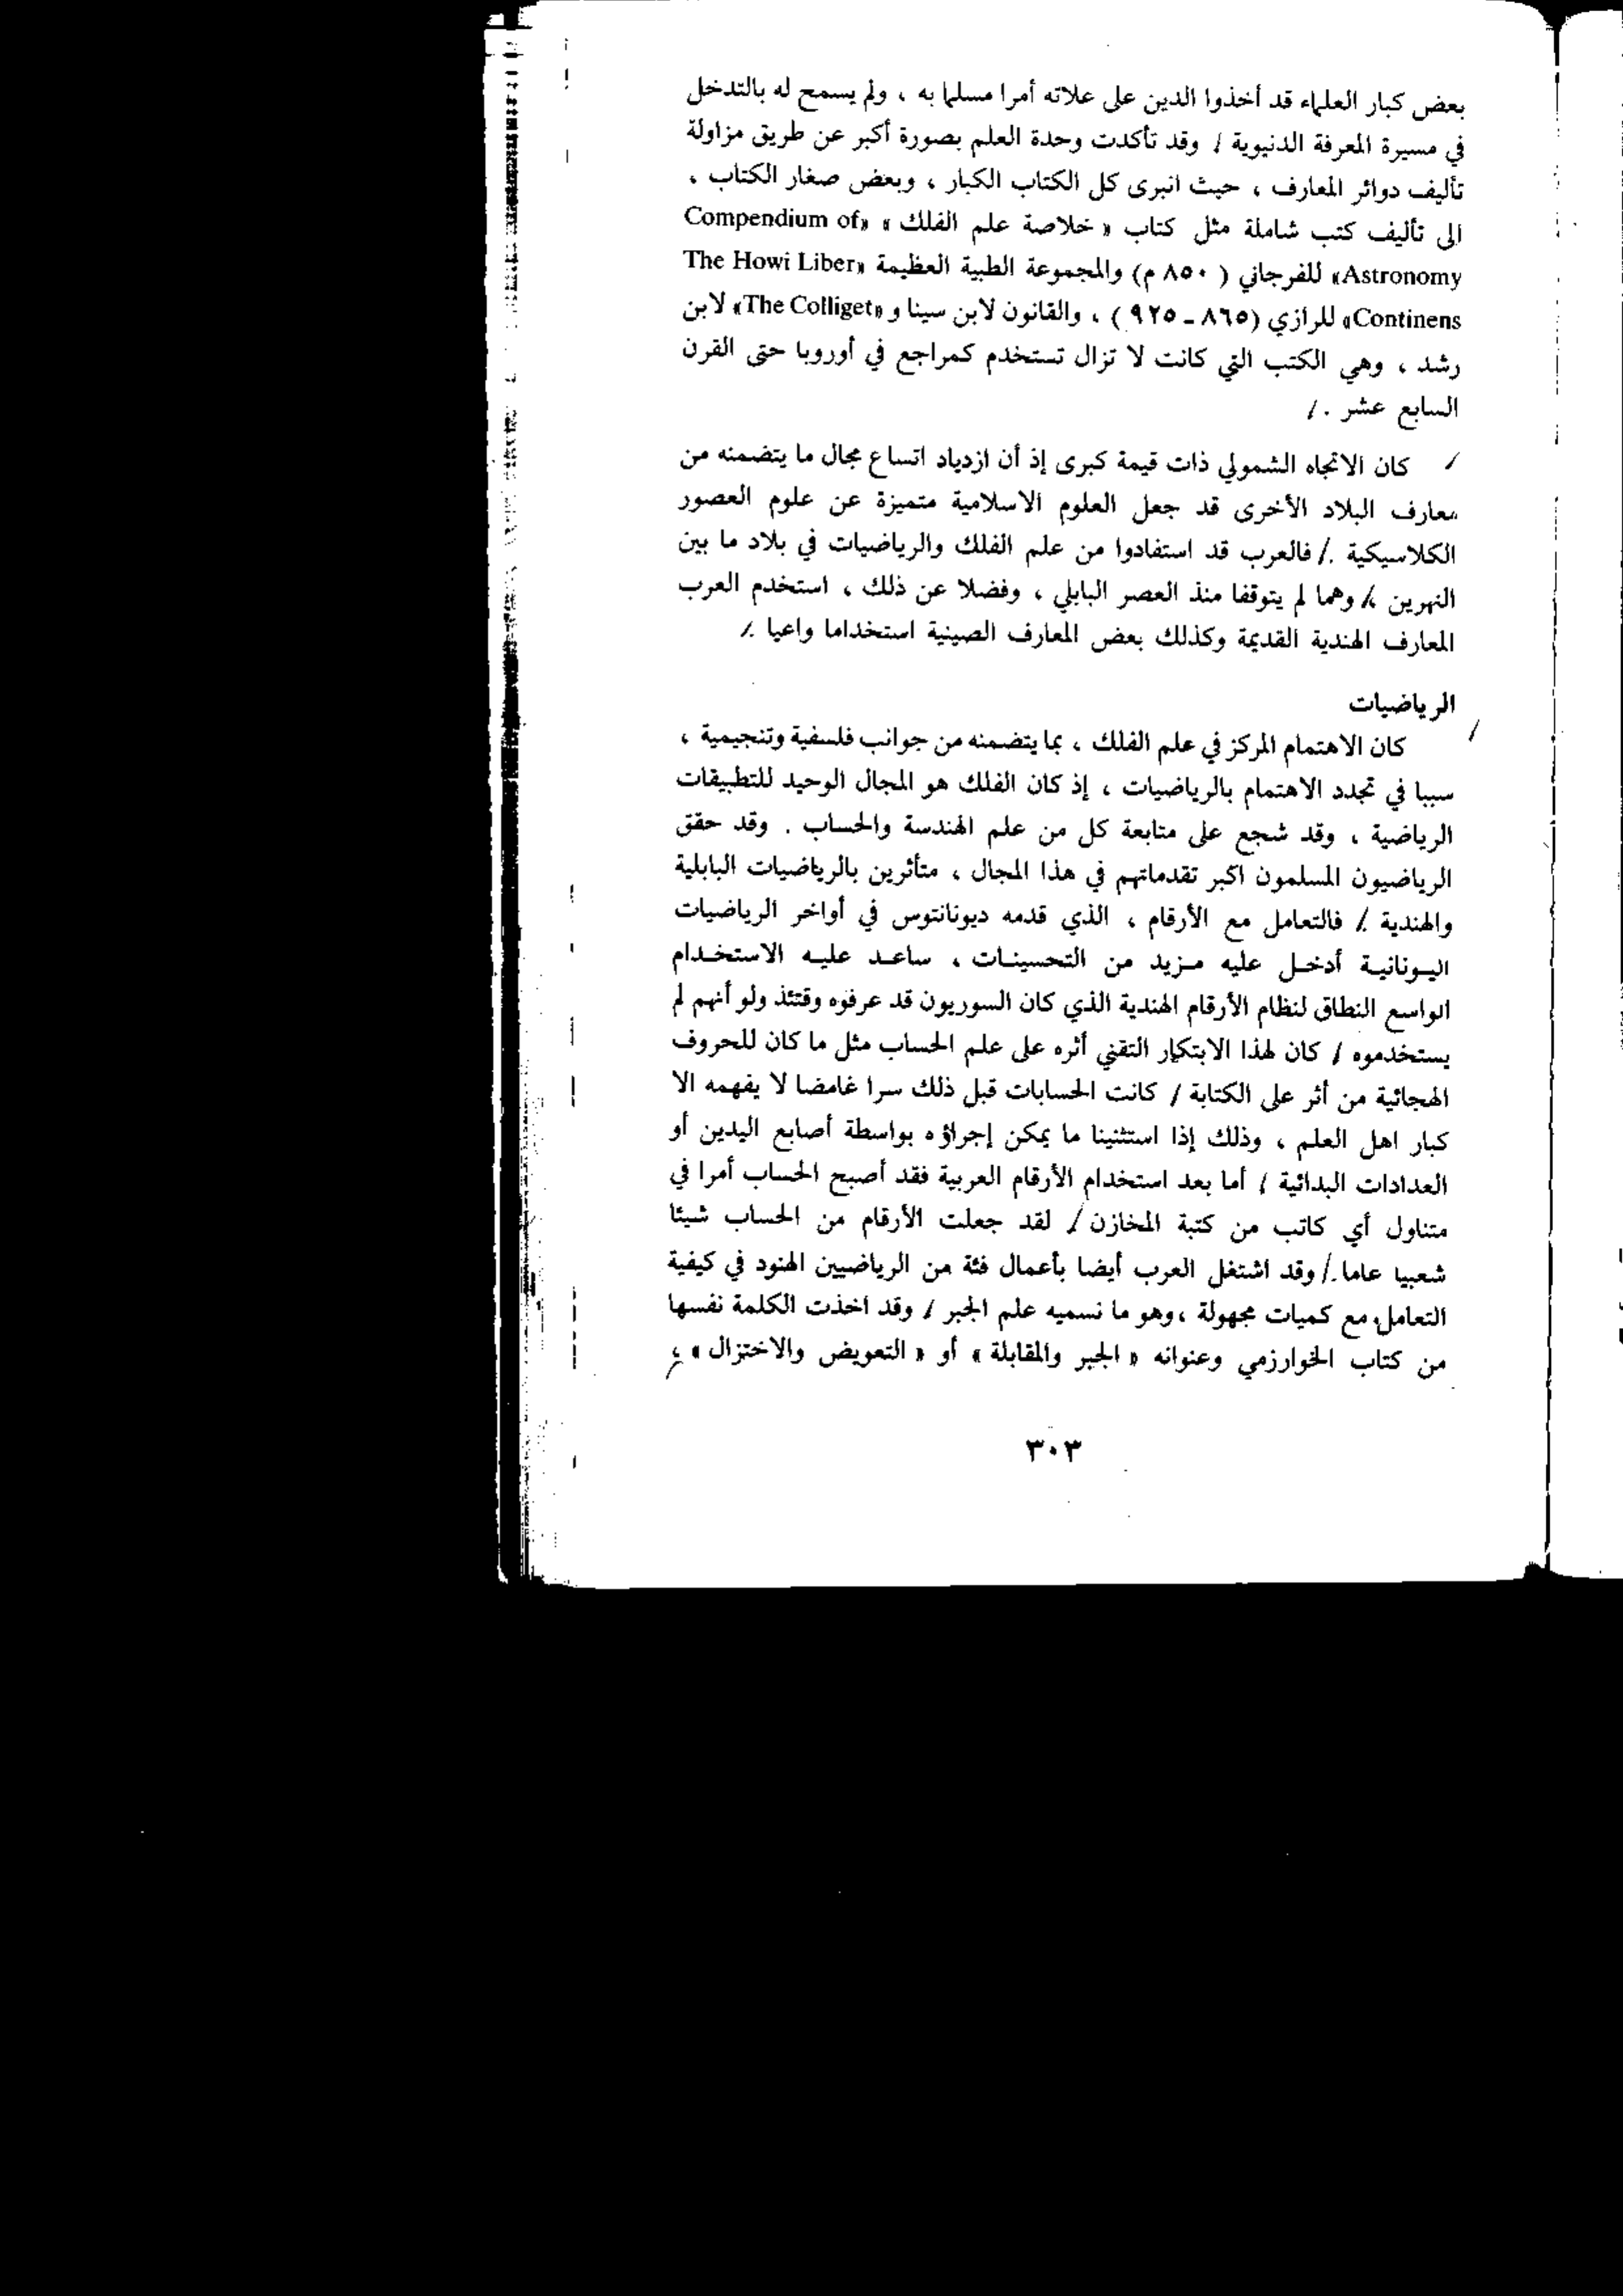 بعض كبار العلماء قد أخذوا الدين على علاته أمرا مسلما به ، ولم يسمح له بالتدخل
في مسيرة المعرفة الدنيوية / وقد تأكدت وحدة العلم بصورة أكبر عن طريق مزاولة
تأليف دوائر المعارف ، حيث انبرى كل الكتاب الكبار ، وبعض صغار الكتاب ،
الى تأليف كتب شاملة مثل كتاب « خلاصة علم الفلك » «Compendium of
Astronomy» للفرجاني ( ٨٥٠ م) والمجموعة الطبية العظيمة «The Howi Liber
Continens» للرازي (٨٦٥ - ٩٢٥ ) ، والقانون لابن سينا و «The Colliget» لابن
رشد ، وهي الكتب التي كانت لا تزال تستخدم كمراجع في أوروبا حتى القرن
السابع عشر . /
/ كان الاتجاه الشمولي ذات قيمة كبرى إذ أن ازدياد اتساع مجال ما يتضمنه من
معارف البلاد الأخرى قد جعل العلوم الاسلامية متميزة عن علوم العصور
الكلاسيكية . / فالعرب قد استفادوا من علم الفلك والرياضيات في بلاد ما بين
النهرين ، / وهما لم يتوقفا منذ العصر البابلي ، وفضلا عن ذلك ، استخدم العرب
المعارف الهندية القديمة وكذلك بعض المعارف الصينية استخداما واعيا . /
الرياضيات
/ كان الاهتمام المركز في علم الفلك ، بما يتضمنه من جوانب فلسفية وتنجيمية ،
سببا في تجدد الاهتمام بالرياضيات ، إذ كان الفلك هو المجال الوحيد للتطبيقات
الرياضية ، وقد شجع على متابعة كل من علم الهندسة والحساب . وقد حقق
الرياضيون المسلمون اكبر تقدماتهم في هذا المجال ، متأثرين بالرياضيات البابلية
والهندية . / فالتعامل مع الأرقام ، الذي قدمه ديونانتوس في أواخر الرياضيات
اليونانية أدخل عليه مزيد من التحسينات ، ساعد عليه الاستخدام
الواسع النطاق لنظام الأرقام الهندية الذي كان السوريون قد عرفوه وقتئذ ولو أنهم لم
يستخدموه / كان لهذا الابتكار التقني أثره على علم الحساب مثل ما كان للحروف
الهجائية من أثر على الكتابة / كانت الحسابات قبل ذلك سرا غامضا لا يفهمه الا
كبار اهل العلم ، وذلك إذا استثنينا ما يمكن إجراؤه بواسطة أصابع اليدين أو
العدادات البدائية / أما بعد استخدام الأرقام العربية فقد أصبح الحساب أمرا في
متناول أي كاتب من كتبة المخازن / . لقد جعلت الأرقام من الحساب شيئا
شعبيا عاما . / وقد اشتغل العرب أيضا بأعمال فئة من الرياضيين الهنود في كيفية
التعامل مع كميات مجهولة ، وهو ما نسميه علم الجبر / وقد اخذت الكلمة نفسها
من كتاب الخوارزمي وعنوانه « الجبر والمقابلة » أو « التعويض والاختزال » ،
٣٠٣